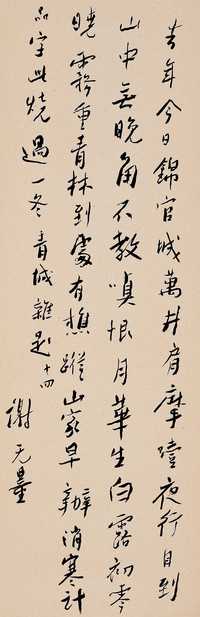 去年今日錦官城萬井肩摩夜行自到
山中無晚角不教嗔恨月華生白露初零
曉霧重青林到處有樵蹤山家早辦消寒計
品字此燒過一冬青城雜題十四
謝无量